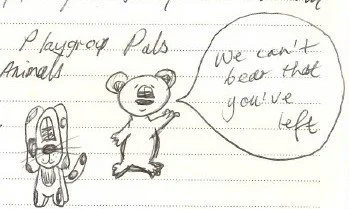 Playgroup Pals
Animals
We can't
bear that
you've
left